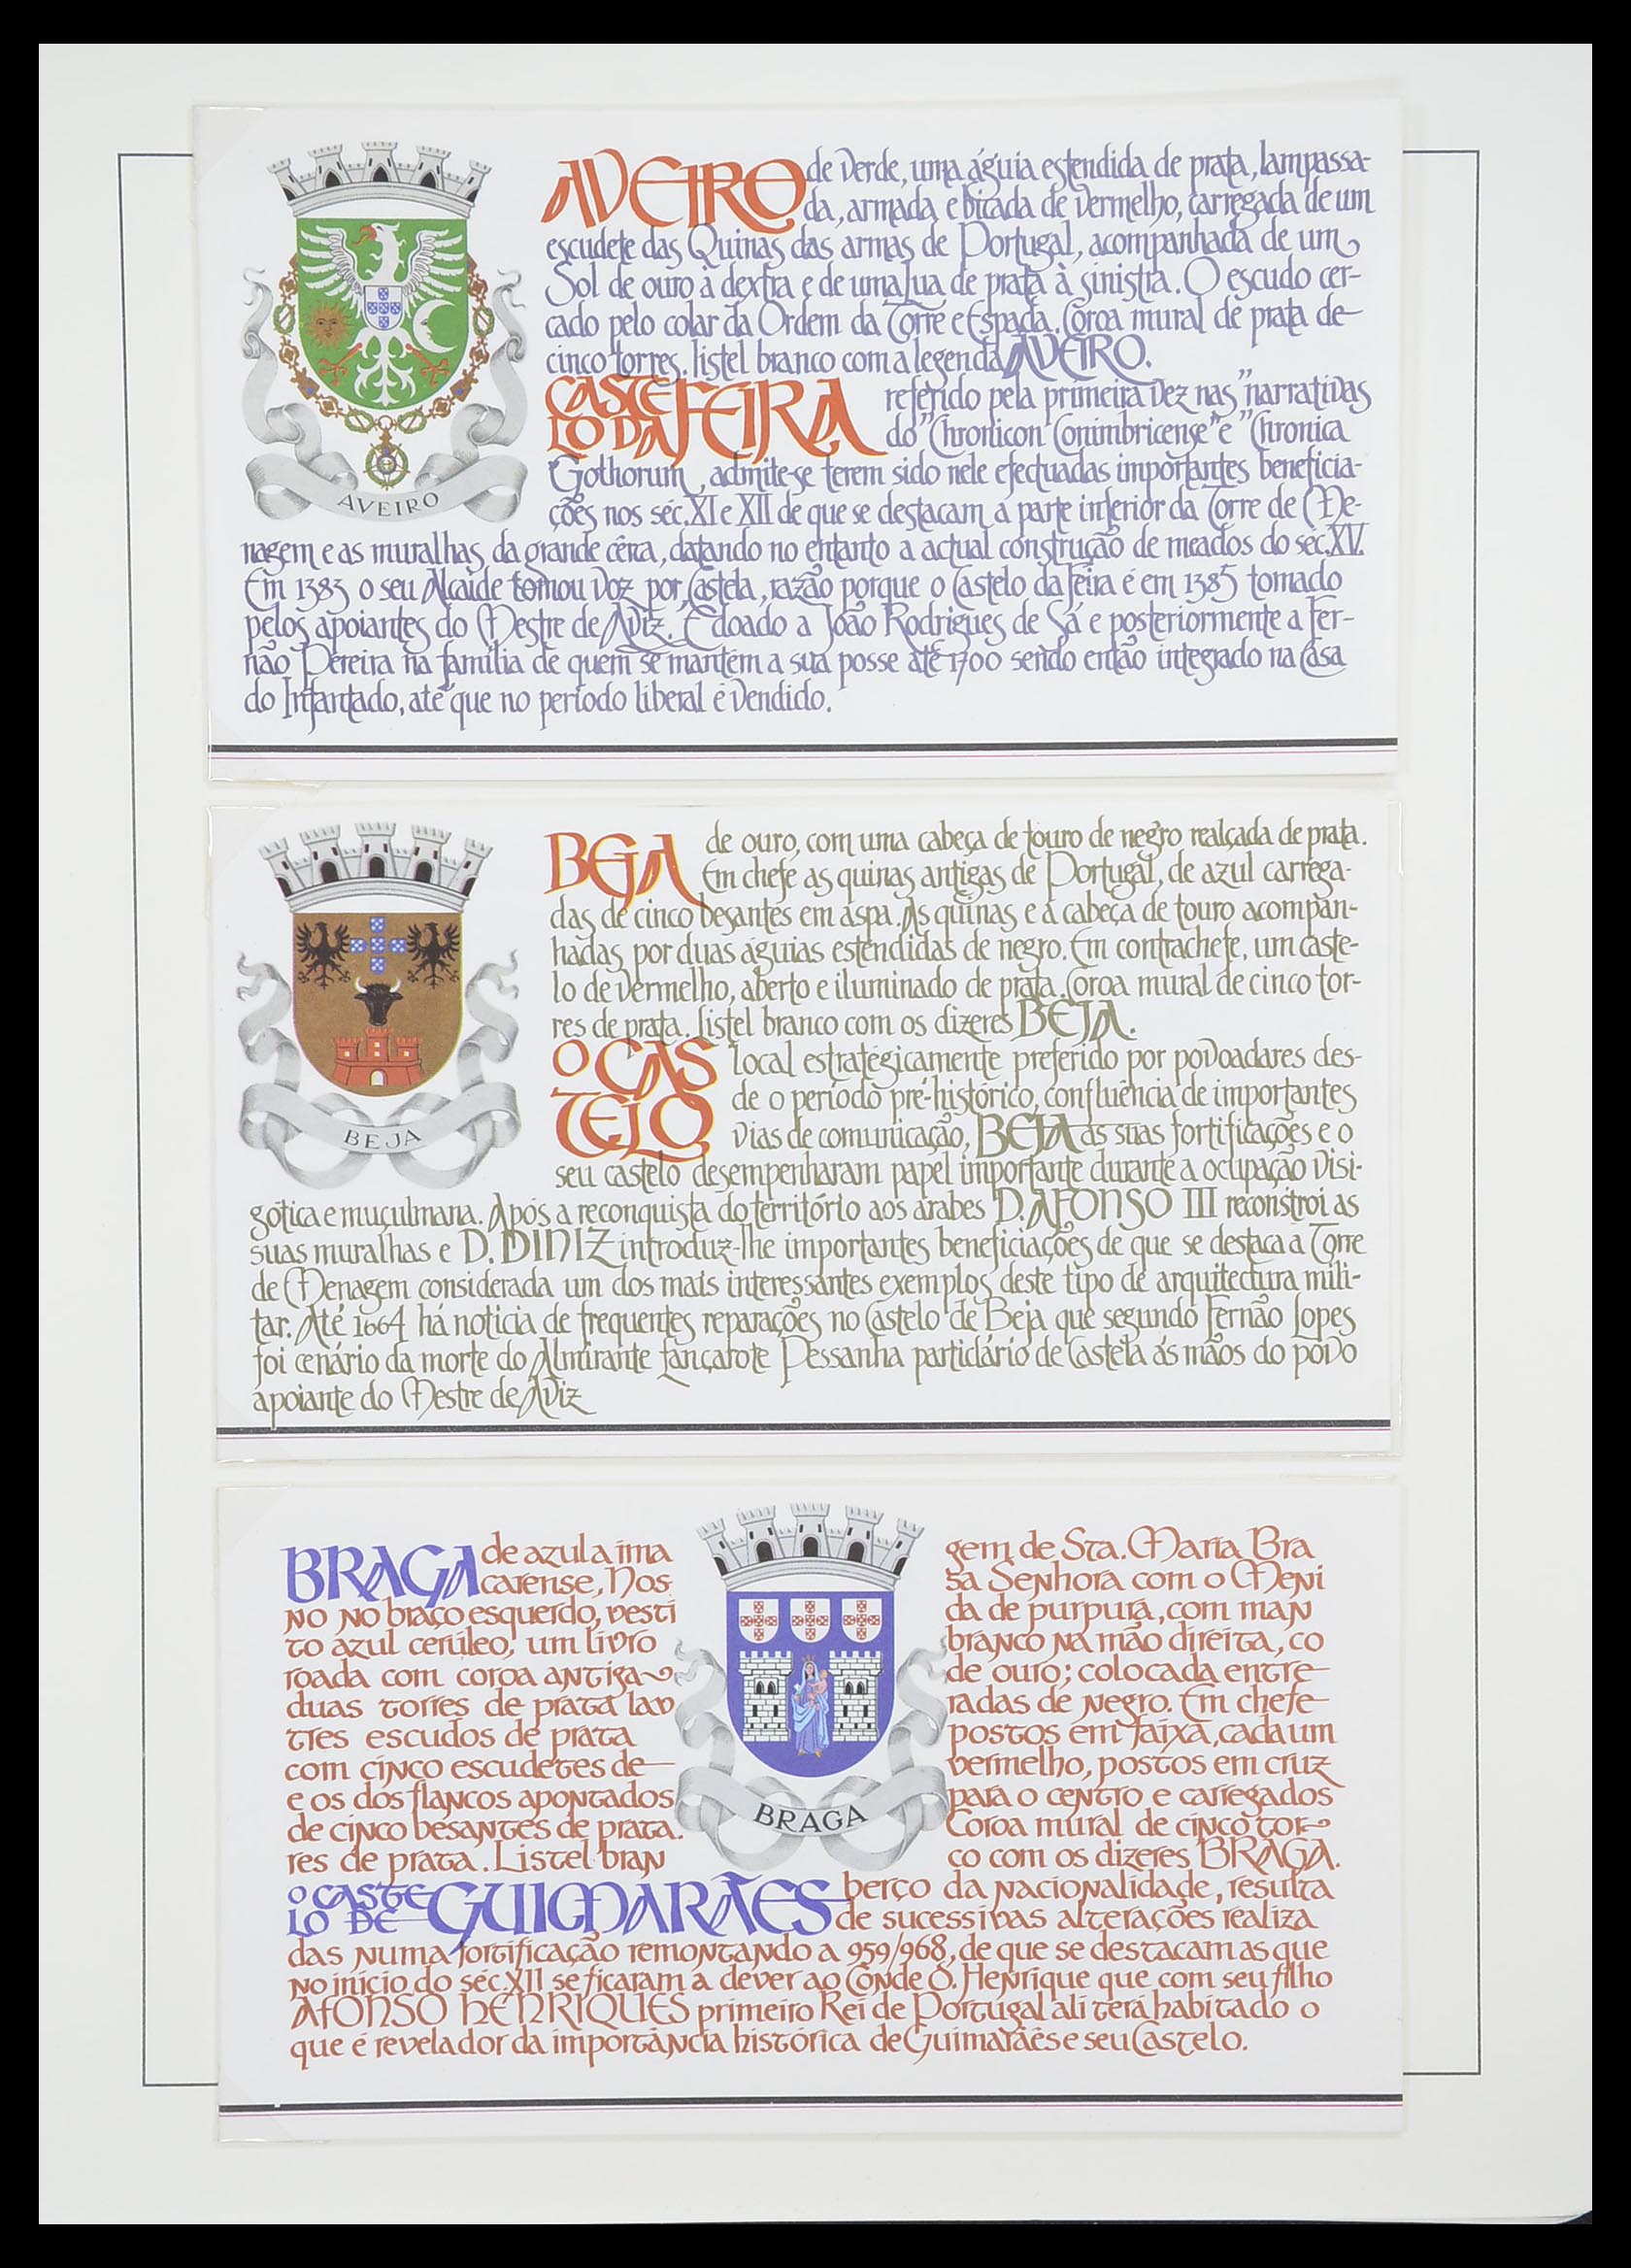 AVEIRO de verde, uma águia estendida de prata, lampassa-
da, armada e bicada de vermelho, carregada de um
escudete das Quinas das armas de Portugal, acompanhada de um
Sol de ouro à dextra e de uma lua de prata à sinistra. O escudo cer-
cado pelo colar da Ordem da Torre e Espada. Coroa mural de prata de
cinco torres. listel branco com a legenda AVEIRO.
CASTE
LO DA FEIRA referido pela primeira vez nas "narrativas
do "Chronicon Conimbricense" e "Chronica
Gothorum, admite-se terem sido nele efectuadas importantes beneficia-
ções nos séc. XI e XII de que se destacam a parte inferior da Torre de Me-
nagem e as muralhas da grande cêrca, datando no entanto a actual construção de meados do séc. XV.
Em 1383 o seu Alcaide tomou voz por Castela, razão porque o Castelo da Feira é em 1385 tomado
pelos apoiantes do Mestre de Aviz. É doado a João Rodrigues de Sá e posteriormente a Fer-
não Pereira na família de quem se mantém a sua posse até 1700 sendo então integrado na Casa
do Infantado, até que no período liberal é vendido.
AVEIRO
BEJA de ouro, com uma cabeça de touro de negro realçada de prata.
Em chefe as quinas antigas de Portugal, de azul carrega-
das de cinco besantes em aspa. As quinas e a cabeça de touro acompan-
hadas por duas águias estendidas de negro. Em contrachefe, um caste-
lo de vermelho, aberto e iluminado de prata. Coroa mural de cinco tor-
res de prata. Listel branco com os dizeres BEJA.
O CAS
TELO local estratégicamente preferido por povoadares des-
de o período pré-histórico, confluência de importantes
vias de comunicação, BEJA as suas fortificações e o
seu castelo desempenharam papel importante durante a ocupação visi-
gótica e muçulmana. Após a reconquista do território aos árabes D. AFONSO III reconstroi as
suas muralhas e D. DINIZ introduz-lhe importantes beneficiações de que se destaca a Torre
de Menagem considerada um dos mais interessantes exemplos deste tipo de arquitectura mili-
tar. Até 1664 há noticia de frequentes reparações no Castelo de Beja que segundo Fernão Lopes
foi cenário da morte do Almirante Lançarote Pessanha particlário de Castela ás mãos do povo
apoiante do Mestre de Aviz
BEJA
BRAGA de azul a ima gem de Sta. Maria Bra
carense, Nos sa Senhora com o Meni
no no braço esquerdo, vesti da de purpura, com man
to azul cerúleo, um livro branco na mão direita, co
roada com coroa antiga de ouro; colocada entre
duas torres de prata lav radas de negro. Em chefe
tres escudos de prata postos em faixa, cada um
com cinco escudetes de vermelho, postos em cruz
e os dos flancos apontados para o centro e carregados
de cinco besantes de prata. Coroa mural de cinco tor
res de prata. Listel bran co com os dizeres BRAGA.
BRAGA
O CASTE
LO DE GUIMARÃES berço da nacionalidade, resulta
de sucessivas alterações realiza
das numa fortificação remontando a 959/968, de que se destacam as que
no inicio do séc XII se ficaram a dever ao Conde D. Henrique que com seu filho
AFONSO HENRIQUES primeiro Rei de Portugal ali terá habitado o
que é revelador da importância histórica de Guimarães e seu Castelo.